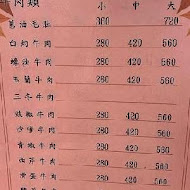 牛肉類 小 中 大
蔥油毛肚 360 720
白灼牛肉 280 420 560
蠔油牛肉 280 420 560
韭黃牛肉 280 420 560
三冬牛肉
豉椒牛肉 280 420 560
沙爹牛肉 280 420 560
青椒牛肉 280 420 560
西芹牛肉 280 420 560
滑蛋牛肉 280 420 560
280 420 560